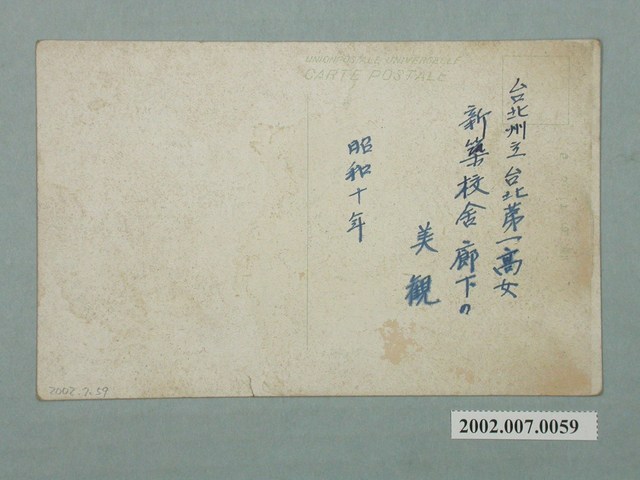 UNION POSTALE UNIVERSELLE
CARTE POSTALE
台北州立台北第一高女
新築校舎廊下の
美観
昭和十年
2002.7.59
2002.007.0059